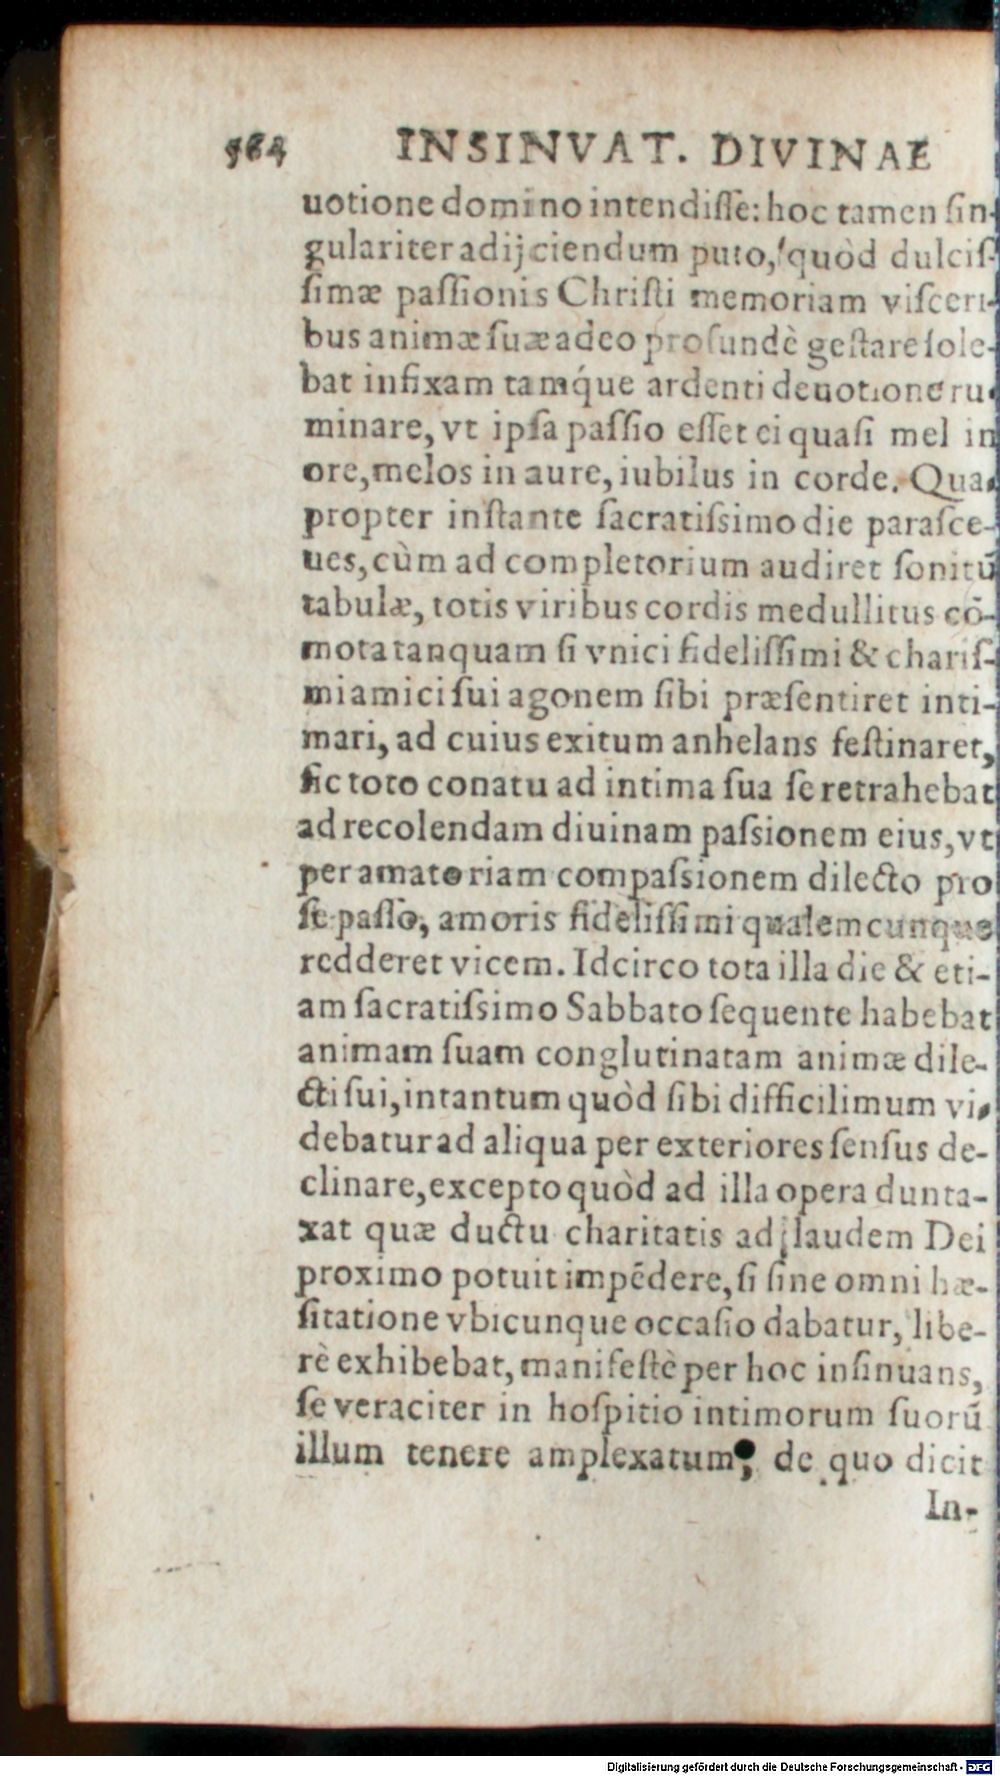 564 INSINVAT. DIVINAE
uotione domino intendiſſe: hoc tamen ſin-
gulariter adijciendum puto, quòd dulciſ-
ſimæ paſſionis Chriſti memoriam viſceri-
bus animæ ſuæ adeo profundè geſtare ſole-
bat infixam tamq́ue ardenti deuotione ru-
minare, vt ipſa paſſio eſſet ei quaſi mel in
ore, melos in aure, iubilus in corde. Qua-
propter inſtante ſacratiſsimo die paraſce-
ues, cùm ad completorium audiret ſonitū
tabulæ, totis viribus cordis medullitus cō-
mota tanquam ſi vnici fideliſſimi & chariſ-
mi amici ſui agonem ſibi præſentiret inti-
mari, ad cuius exitum anhelans feſtinaret,
ſic toto conatu ad intima ſua ſe retrahebat
ad recolendam diuinam paſsionem eius, vt
per amatoriam compaſsionem dilecto pro
ſe paſſo, amoris fideliſſimi qualemcunque
redderet vicem. Idcirco tota illa die & eti-
am ſacratiſsimo Sabbato ſequente habebat
animam ſuam conglutinatam animæ dile-
cti ſui, intantum quòd ſibi difficilimum vi-
debatur ad aliqua per exteriores ſenſus de-
clinare, excepto quòd ad illa opera dunta-
xat quæ ductu charitatis ad laudem Dei
proximo potuit impēdere, ſi ſine omni hæ-
ſitatione vbicunque occaſio dabatur, libe-
rè exhibebat, manifeſtè per hoc inſinuans,
ſe veraciter in hoſpitio intimorum ſuorū
illum tenere amplexatum, de quo dicit
In-
Digitalisierung gefördert durch die Deutsche Forschungsgemeinschaft - DFG